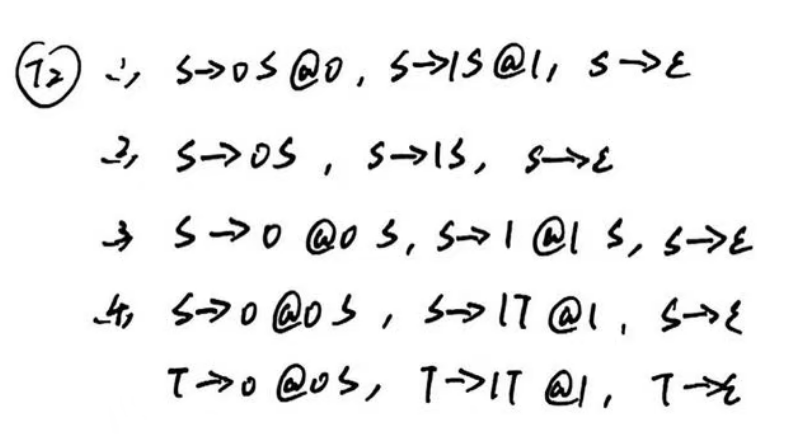 T2 1, S→0S@0, S→1S@1, S→ε
2, S→0S, S→1S, S→ε
3 S→0 @0 S, S→1 @1 S, S→ε
4, S→0@0S, S→1T@1, S→ε
T→0 @0S, T→1T @1, T→ε